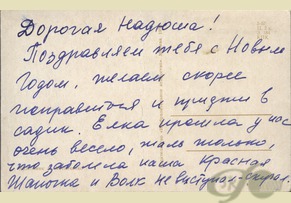 Дорогая Надюша!
Поздравляем тебя с Новым
Годом, желаем скорее
поправиться и прийти в
садик. Елка прошла у нас
очень весело, жаль только,
что заболела наша Красная
Шапочка и Волк не выступал-скучал.